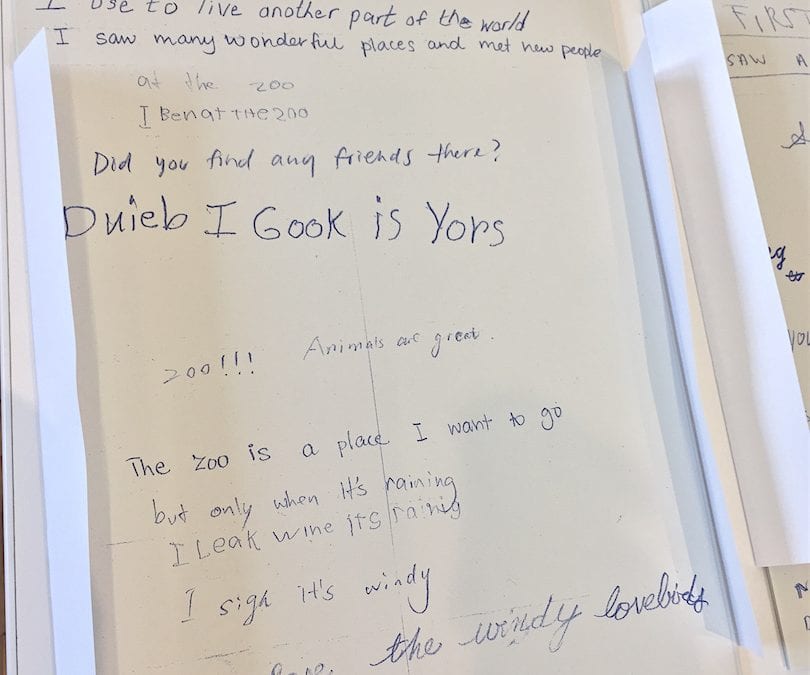 I use to live another part of the world
I saw many wonderful places and met new people
at the zoo
I Ben at THE zoo
Did you find any friends there?
Dnieb I Gook is Yors
zoo!!! Animals are great.
The zoo is a place I want to go
but only when it's raining
I Leak wine its rainig
I sigh it's windy
the windy lovebirds
FIRST
SAW A